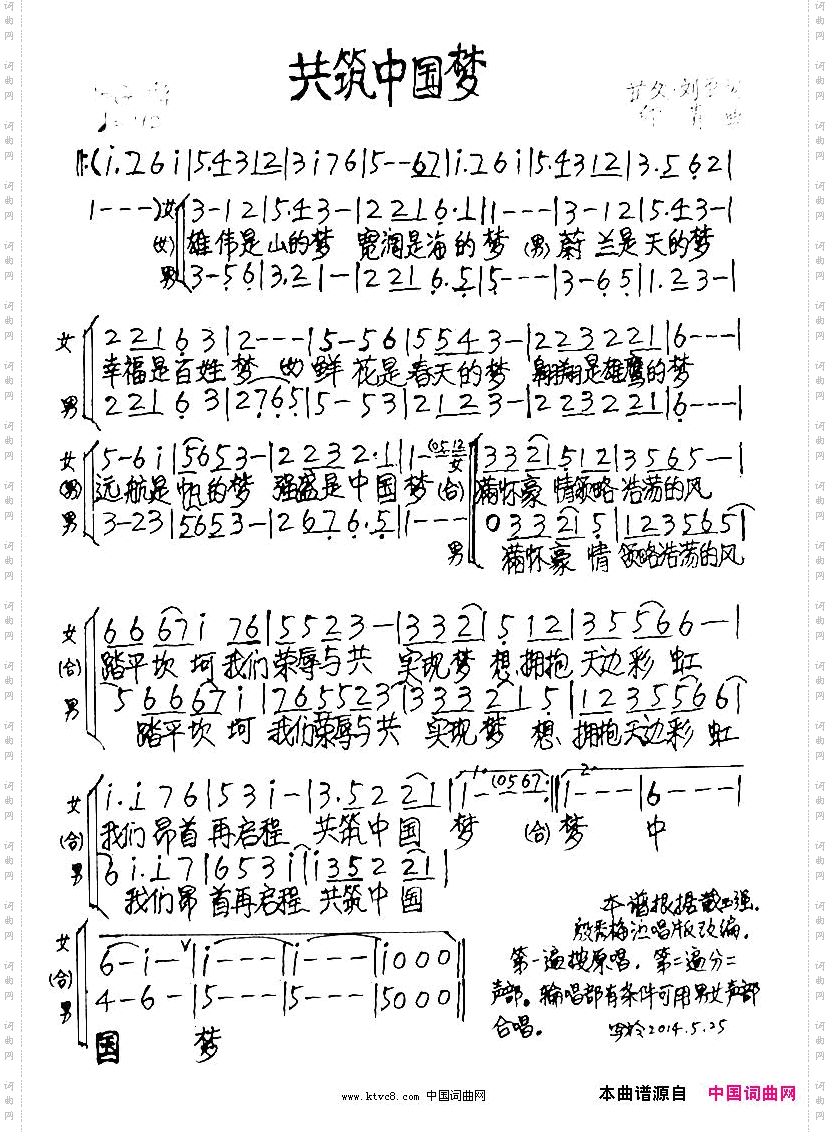 共筑中国梦
甘久·刘
曲
‖:(i.2 6 i|5.4 3 1 2|3 i 7 6|5--67|i.2 6 i|5.4 3 1 2|3.5 6 2|
1---)女 3-12|5.43-|2216.1|1---|3-12|5.43-|
(女)雄伟是山的梦 宽阔是海的梦 (男)蔚兰是天的梦
男 3-56|3.21-|2216.5|5---|3-65|1.23-|
女 22163|2---|5-56|5543-|223221|6---|
幸福是百姓梦 (女)鲜花是春天的梦 翱翔是雄鹰的梦
男 22163|2765|5-53|2123-|223221|6---|
女 5-6i|5653-|2232.1|1-(0512 女 3321512|3565--|
(男)远航是帆的梦 强盛是中国梦(合)满怀豪情领略浩荡的风
男 3-23|5653-|2676.5|1--- 男 033215|123565|
满怀豪情领略浩荡的风
女 6667i76|5523-|332512|35566-|
(合) 踏平坎坷我们荣辱与共 实现梦想拥抱天边彩虹
男 56667i|765523|333215|1235566|
踏平坎坷我们荣辱与共 实现梦想拥抱天边彩虹
女 i.i76|53i-|3.5221|1.1-(0567:‖2.1---|6---|
(合) 我们昂首再启程 共筑中国梦 (合)梦 中
男 6i.i7|6653i|i35221|
我们昂首再启程 共筑中国
本谱根据戴玉强、
殷秀梅演唱版改编。
第一遍按原唱，第二遍分二
声部。轮唱部有条件可用男女声部
合唱。 2014.5.25
女 6-i-∨|i---|i---|i000‖
(合)
男 4-6-|5---|5---|5000‖
国 梦
www.ktvc8.com 中国词曲网
本曲谱源自 中国词曲网